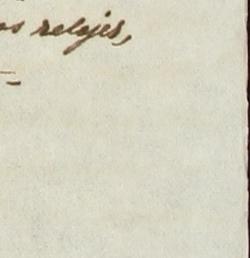 os relojes,